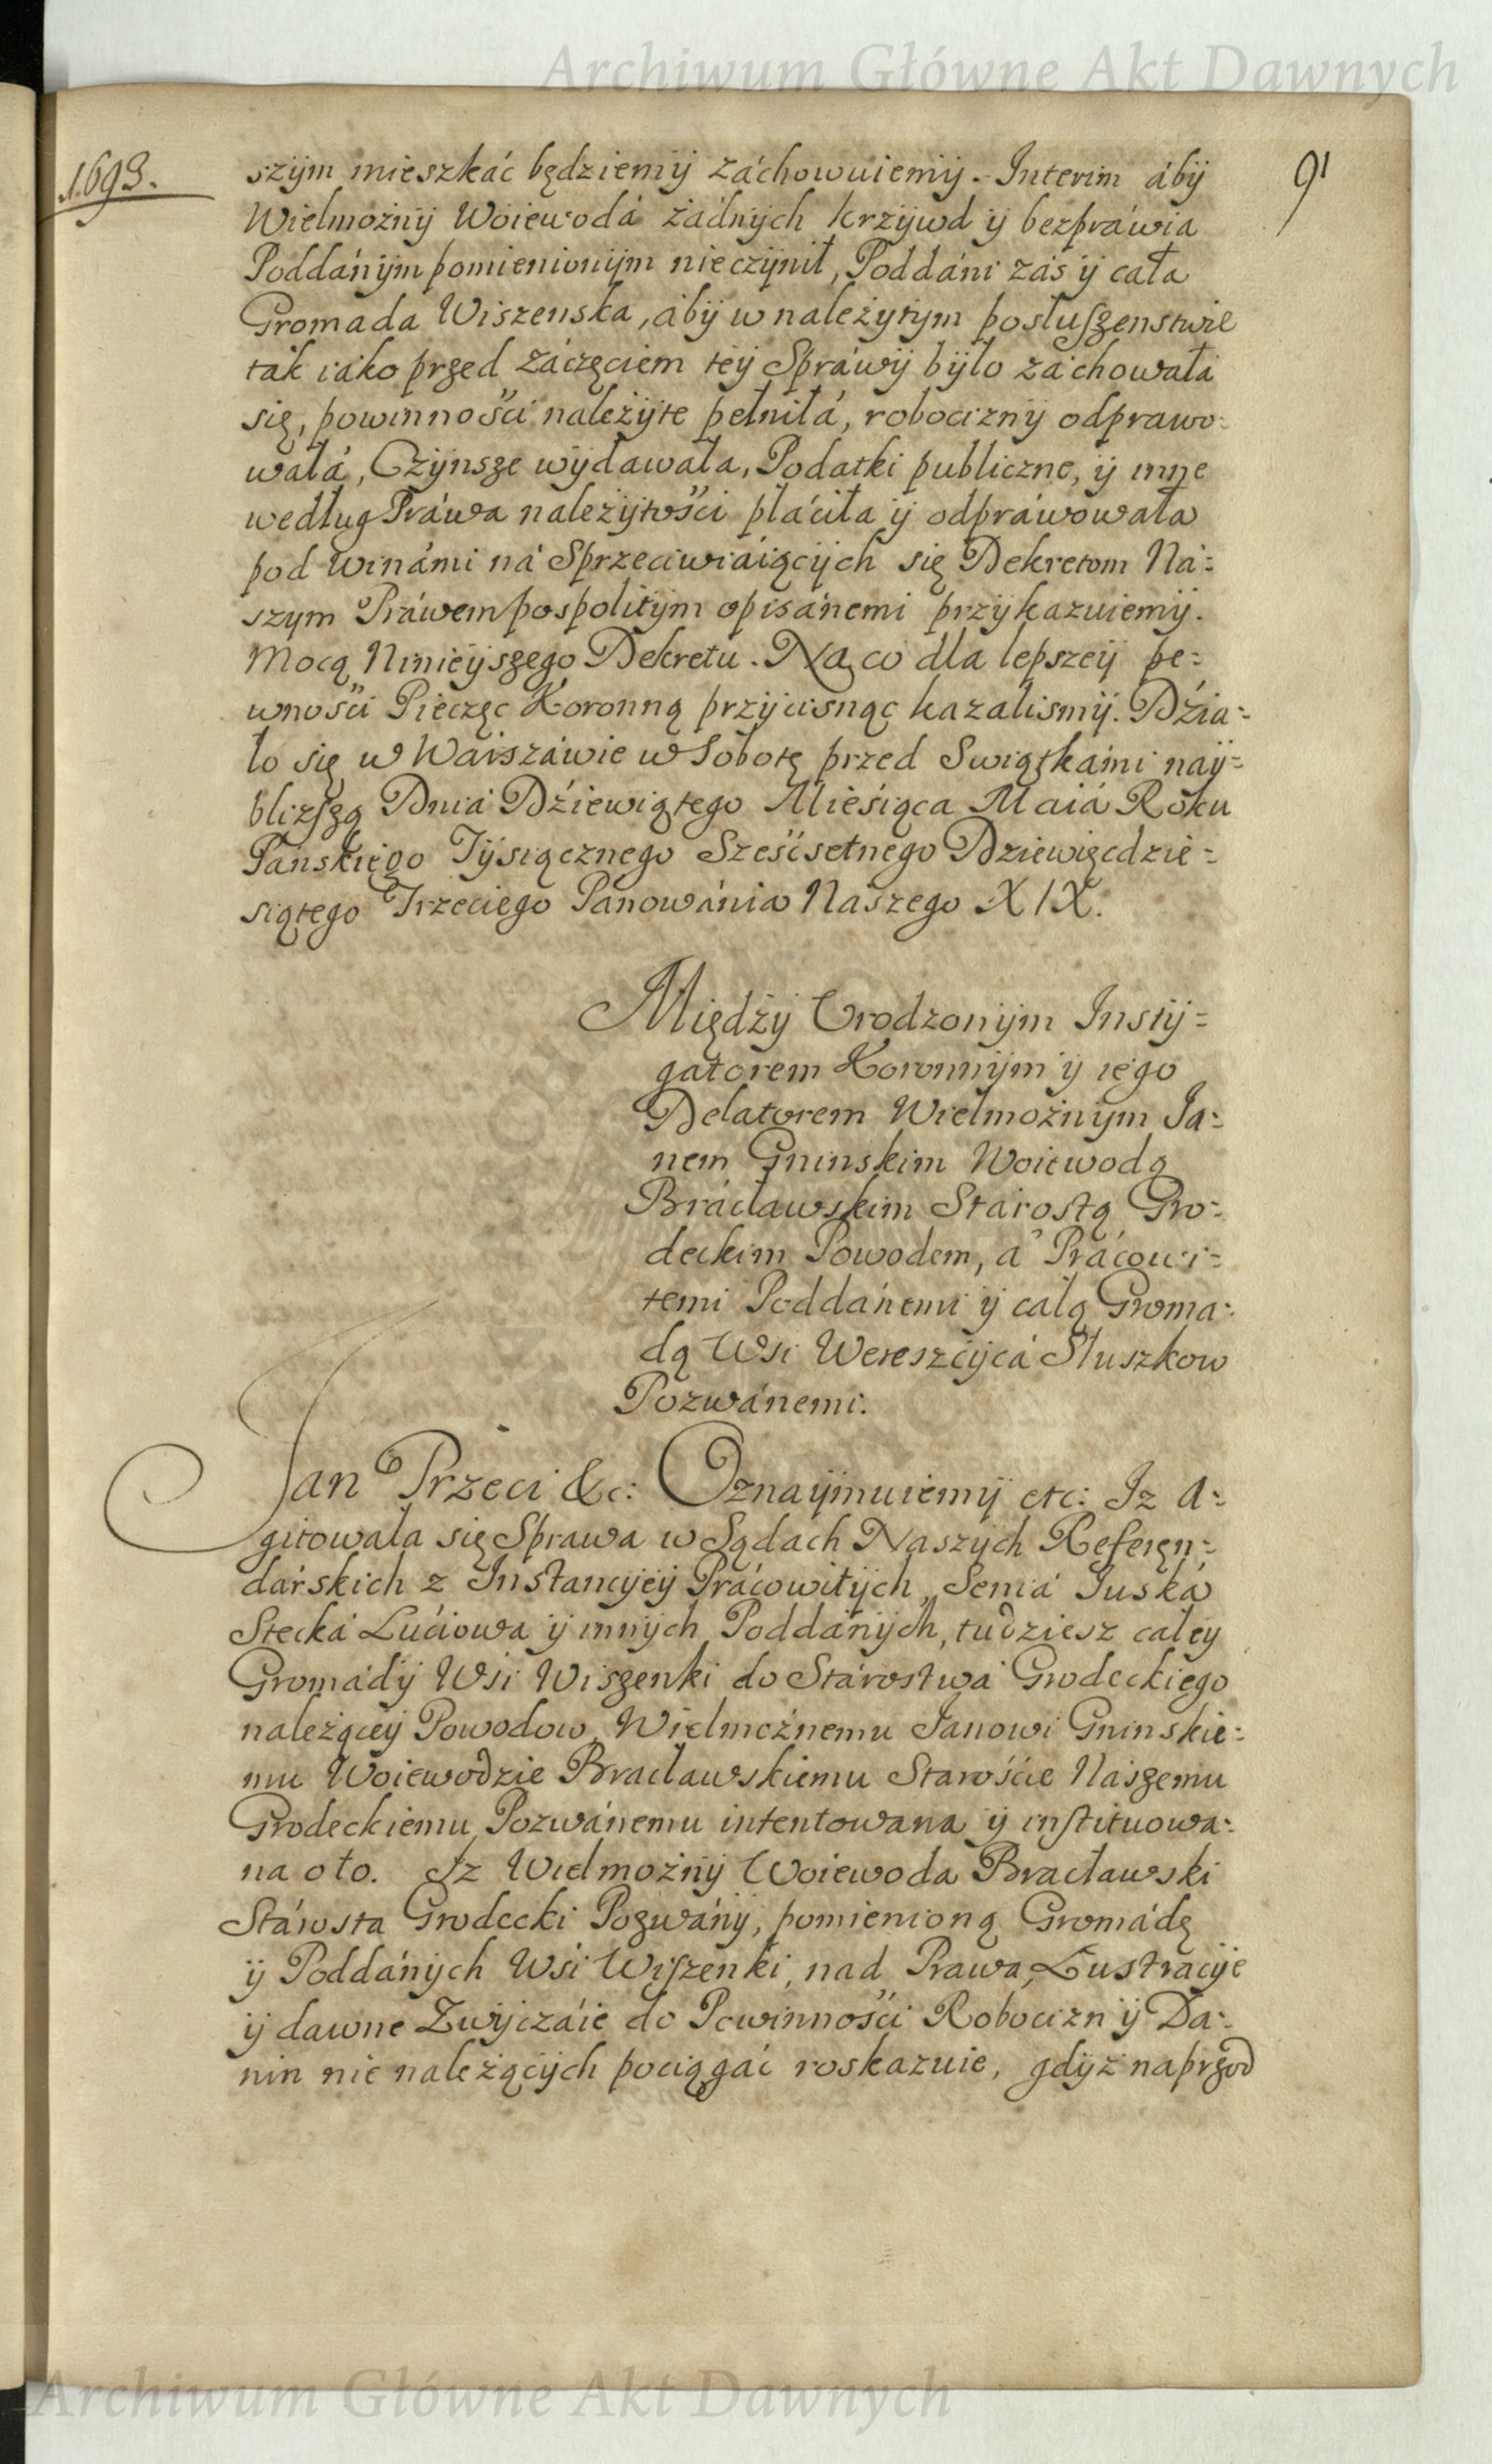 Archiwum Główne Akt Dawnych
1693.
91
szym mieszkáć będziemy záchowuiemy. Interim áby
Wielmożny Woiewodá żádnych krzywd y bezpráwia
Poddánym pomienionym nieczynił, Poddáni zás y cała
Gromada Wiszenska, áby w należytym posłuszenstwie
ták iáko przed záczęciem tey Spráwy było záchowałá
się, powinności należyte pełniłá, robocizny odprawo:
wáłá, Czynsze wydawała, Podatki publiczne, y inne
według Práwa należytości płáciła y odpráwowała
pod winámi ná Sprzeciwiáiących się Dekretom Ná:
szym Práwem pospolitym opisánemi przykazuiemy.
Mocą Ninieyszego Dekretu. Na co dla lepszey pe:
wności Pieczęc Koronną przycisnąc kazalismy. Dźia:
ło się w Wárszáwie w Sobotę przed Swiątkámi nay:
bliższą Dniá Dźiewiątego Mieśiąca Maiá Roku
Pánskiego Tysiącznego Sześćsetnego Dziewięcdzie:
siątego Trzeciego Pánowánia Naszego XIX.
Między Urodzonym Insty:
gatorem Koronnym y iego
Delatorem Wielmożnym Ja:
nem Gninskim Woiewodą
Brácławskim Stárostą Gro:
deckim Powodem, á Prácowi:
temi Poddánemi y całą Groma:
dą Wsi Wereszcycá Słuszkow
Pozwánemi.
Jan Trzeci &c: Oznaymuiemy etc: Iz A:
gitowała się Sprawa w Sądach Naszych Referęn:
dárskich z Instancyey Prácowitych, Seniá Iuská
Stecká Lućiowa y innych Poddánych, tudziesz całey
Gromády Wsi Wiszenki do Stárostwá Grodeckiego
należącey Powodow, Wielmożnemu Janowi Gninskie:
mu Woiewodzie Bracławskiemu Starośćie Nászemu
Grodeckiemu Pozwánemu intentowana y instituowa:
na o to. Iz Wielmożny Woiewoda Bracławski
Stárosta Grodecki Pozwány, pomienioną Gromádę
y Poddánych Wsi Wiszenki, nad Prawa, Lustracye
y dawne Zwyczáie do Powinności Robocizn y Da:
nin nie należących pociągáć roskazuie, gdyż naprzod
Archiwum Główne Akt Dawnych